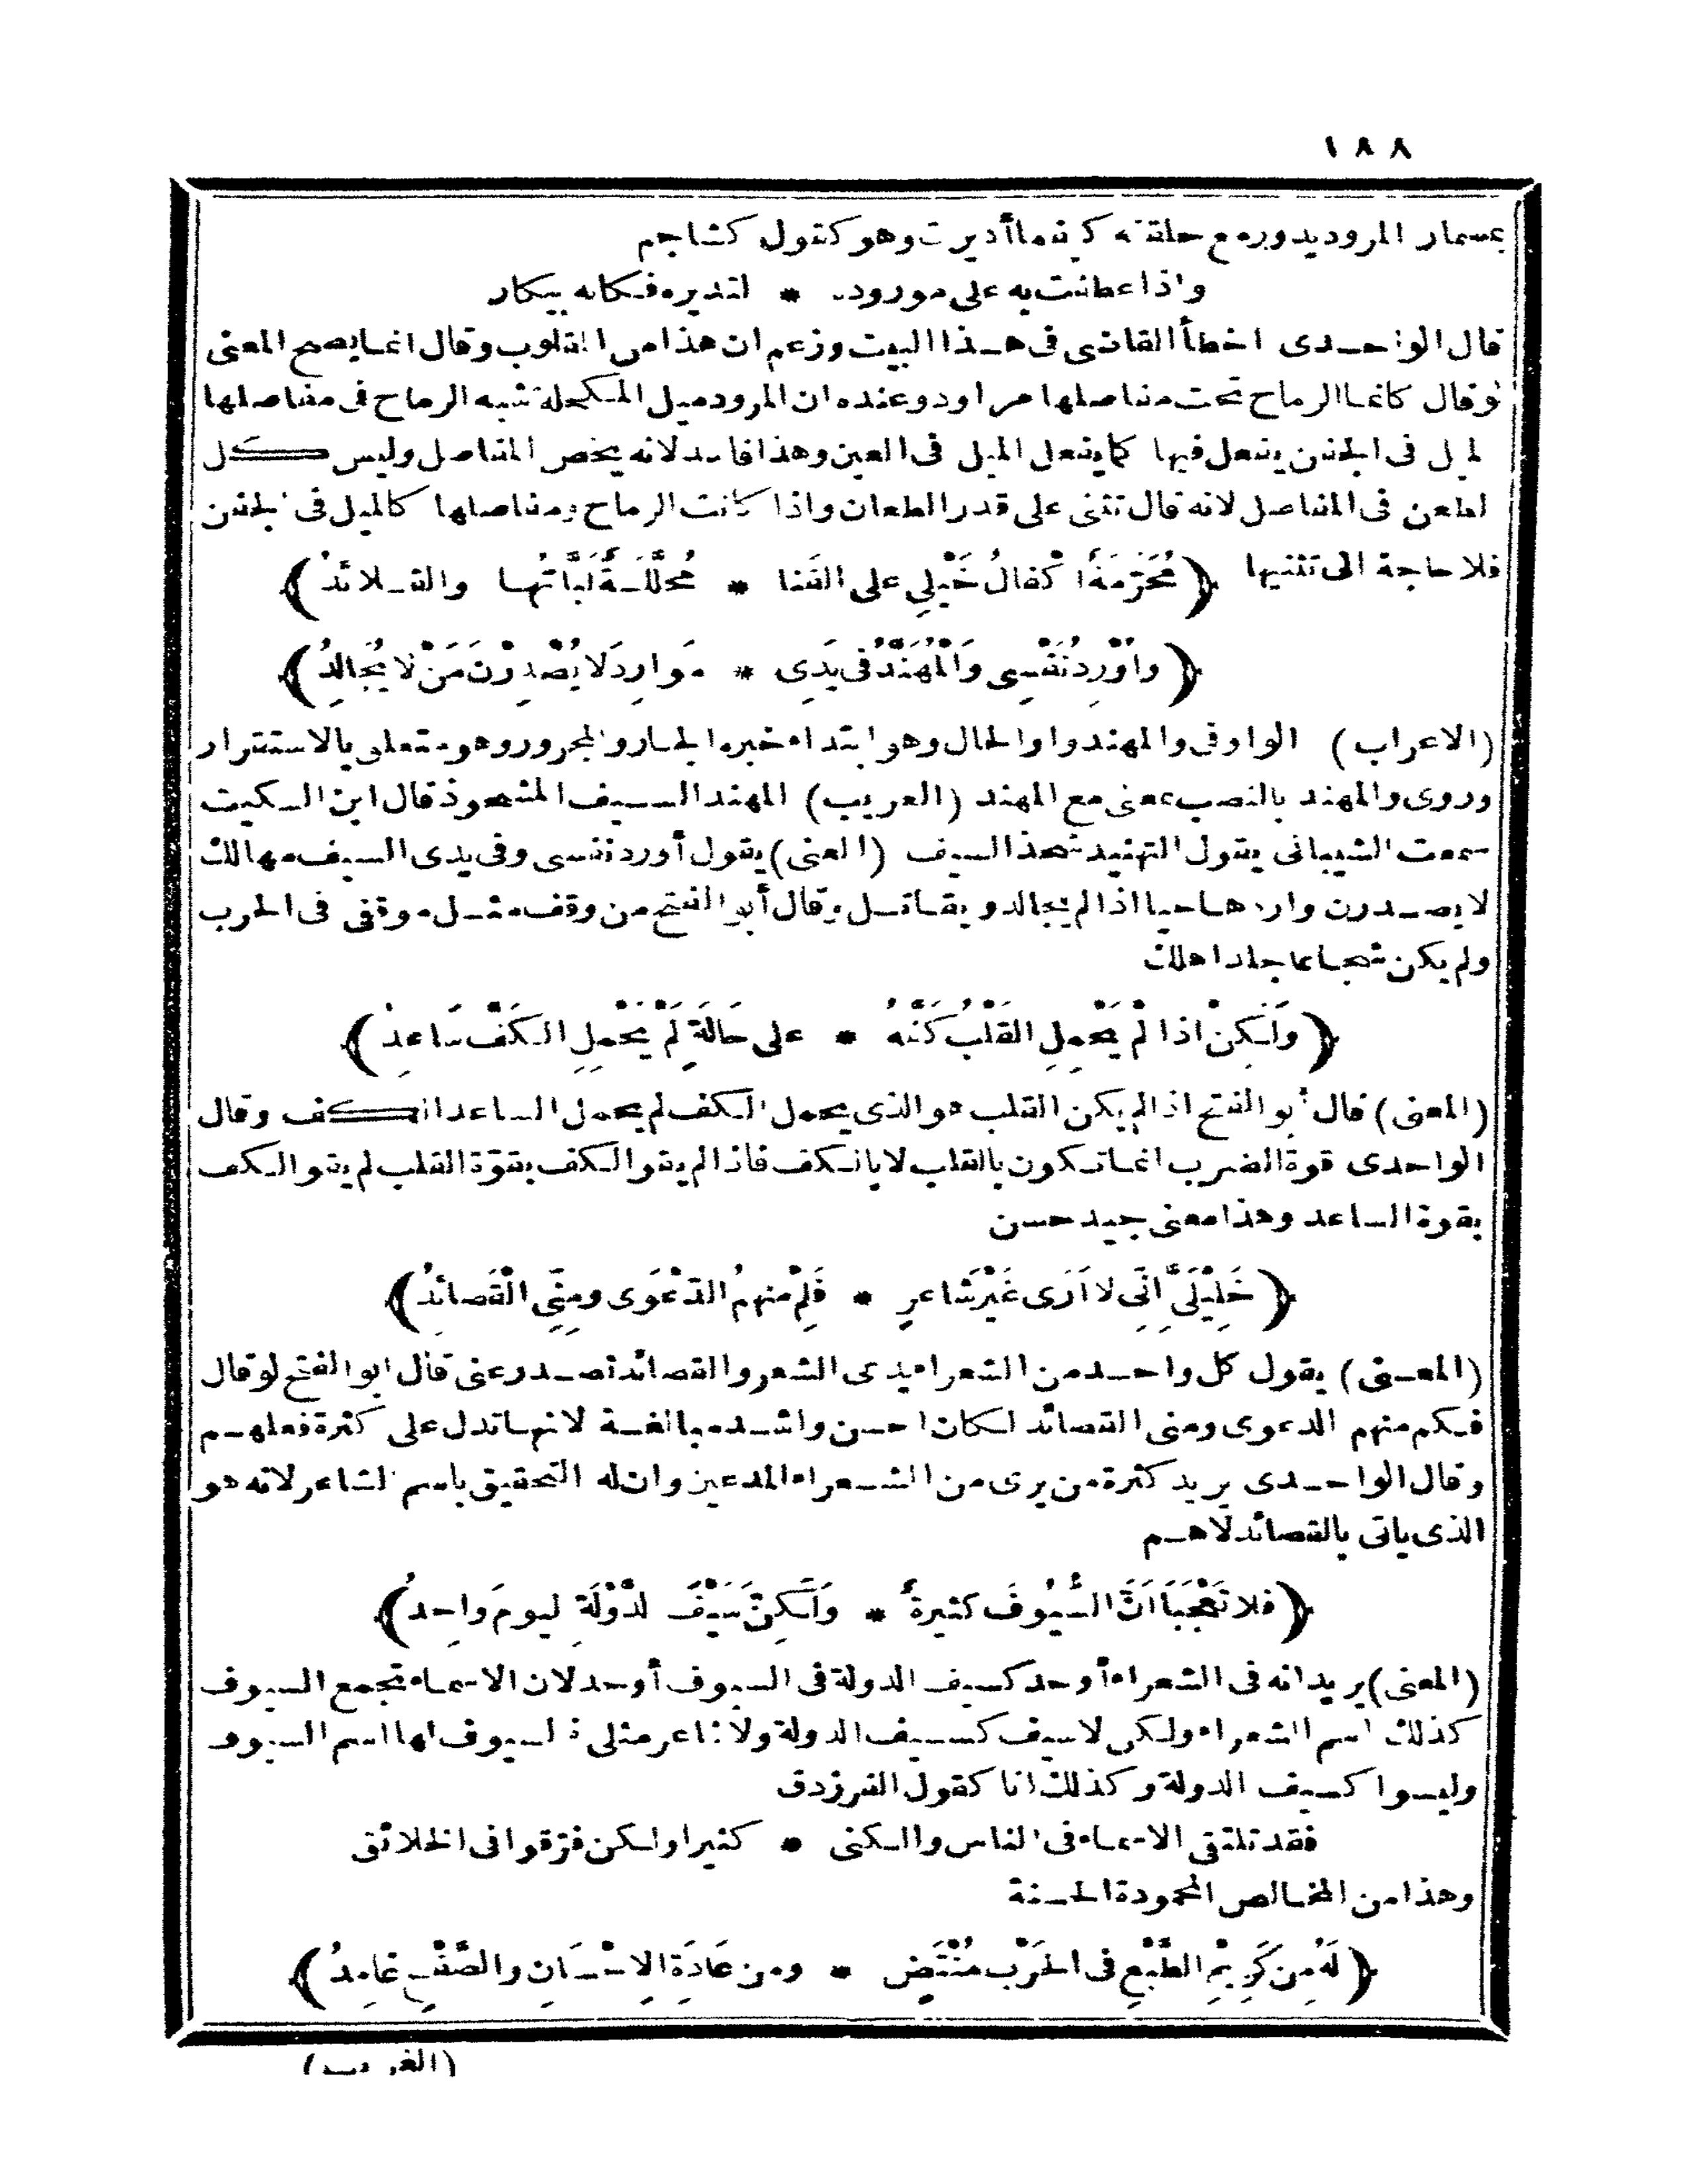 ١٨٨
بمسمار المرود يدور مع حلقته كيفما أديرت وهو كقول كشاجم
واذا عطفت به على موروده * لتديره فكانه بيكار
قال الواحدى اخطأ القاضى فى هذا البيت وزعم ان هذا من المقلوب وقال انما يصح المعنى
لو قال كانما الرماح تحت مفاصلها مراود وعنده ان المرود ميل المكحلة شبه الرماح فى مفاصلها
لميل فى الجفن ينعل فيها كما ينعل الميل فى العين وهذا فاسد لانه يخص المفاصل وليس كل
لطعن فى المفاصل لانه قال تثنى على قدر الطعان واذا كانت الرماح ومفاصلها كالميل فى الجفن
فلا حاجة الى تثنيها (مُحَرَّمَةٌ اَكْفالُ خَيْلِى على القَنا * مُحَلَّلَةٌ لَبَّاتُها والقلائدُ)
(واُوْرِدُ نَفْسِى وَالْمُهَنَّدُ فى يَدِى * مَوارِدَ لا يُصْدِرْنَ مَنْ لا يُجَالِدُ)
(الاعراب) الواو فى والمهند واو الحال وهو ابتداء خبره الجار والمجرور وهو متعلق بالاستقرار
وروى والمهند بالنصب بمعنى مع المهند (الغريب) المهند السيف المشحوذ قال ابن السكيت
سمعت الشيبانى يقول التهنيد شحذ السيف (المعنى) يقول أورد نفسى وفى يدى السيف مهالك
لا يصدرن واردها حيا اذا لم يجالد ويقاتل وقال أبو الفتح من وقف مثل موقفى فى الحرب
ولم يكن شجاعا جلدا هلك
(وَلَكِنْ اذا لَمْ يَحْمِلِ القَلْبُ كَفَّهُ * على حَالَةٍ لَمْ يَحْمِلِ الكَفَّ سَاعِدُ)
(المعنى) قال أبو الفتح اذا لم يكن القلب هو الذى يحمل الكف لم يحمل الساعد الكف وقال
الواحدى قوة الضرب انما تكون بالقلب لا بالكف فاذا لم يقو الكف بقوّة القلب لم يقو الكف
بقوة الساعد وهذا معنى جيد حسن
(خَلِيْلَىَّ اِنِّى لا اَرَى غَيْرَ شَاعِرٍ * فَلِمْ مِنهمُ الدَّعْوَى ومِنِّى الْقَصائِدُ)
(المعنى) يقول كل واحد من الشعراء يدعى الشعر والقصائد تصدر عنى قال ابو الفتح لو قال
فكم منهم الدعوى ومنى القصائد لكان احسن واشد مبالغة لانها تدل على كثرة فعلهم
وقال الواحدى يريد كثرة من يرى من الشعراء المدعين وان له التحقيق باسم الشاعر لانه هو
الذى ياتى بالقصائد لاهم
(فلا تَعْجَبَا اَنَّ السُّيُوفَ كثيرةٌ * وَلَكِنَّ سَيْفَ الدَّوْلَةِ ليومَ واحِدُ)
(المعنى) يريد انه فى الشعراء أوحد كسيف الدولة فى السيوف أوحد لان الاسماء تجمع السيوف
كذلك اسم الشعراء ولكن لا سيف كسيف الدولة ولا شاعر مثلى فالسيوف لها اسم السيوف
وليسوا كسيف الدولة وكذلك انا كقول الفرزدق
فقد تلتقى الاسماء فى الناس والكنى * كثيرا ولكن فرّقوا فى الخلائق
وهذا من المخالص المحمودة الحسنة
(لَهُ مِن كَرِيْمِ الطَّبْعِ فى الحَرْبِ مُنْتَضٍ * ومن عَادَةِ الاِحْسَانِ والصَّفْحِ غامِدُ)
(الغريب)